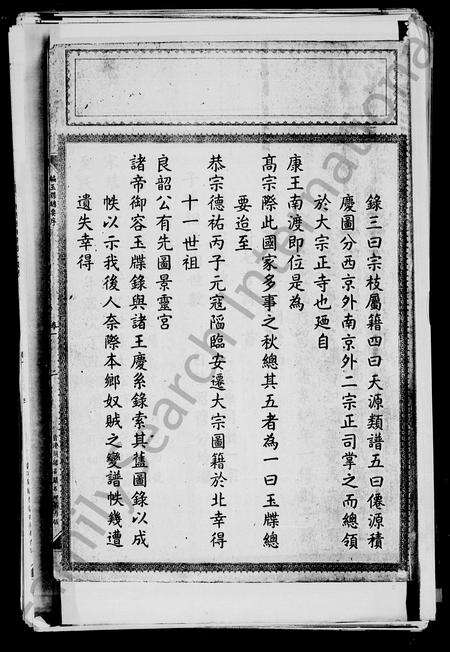 錄三曰宗枝屬籍四曰天源類譜五曰僊源積
慶圖分西京外南京外二宗正司掌之而總領
於大宗正寺也廼自
康王南渡即位是為
髙宗際此國家多事之秋總其五者為一曰玉牒總
要迨至
恭宗德祐丙子元寇陷臨安遷大宗圖籍於北幸得
十一世祖
良韶公有先圖景靈宮
諸帝御容玉牒錄與諸王慶系錄索其舊圖錄以成
帙以示我後人奈際本鄉奴賊之變譜帙幾遭
遺失幸得
FamilySearch International